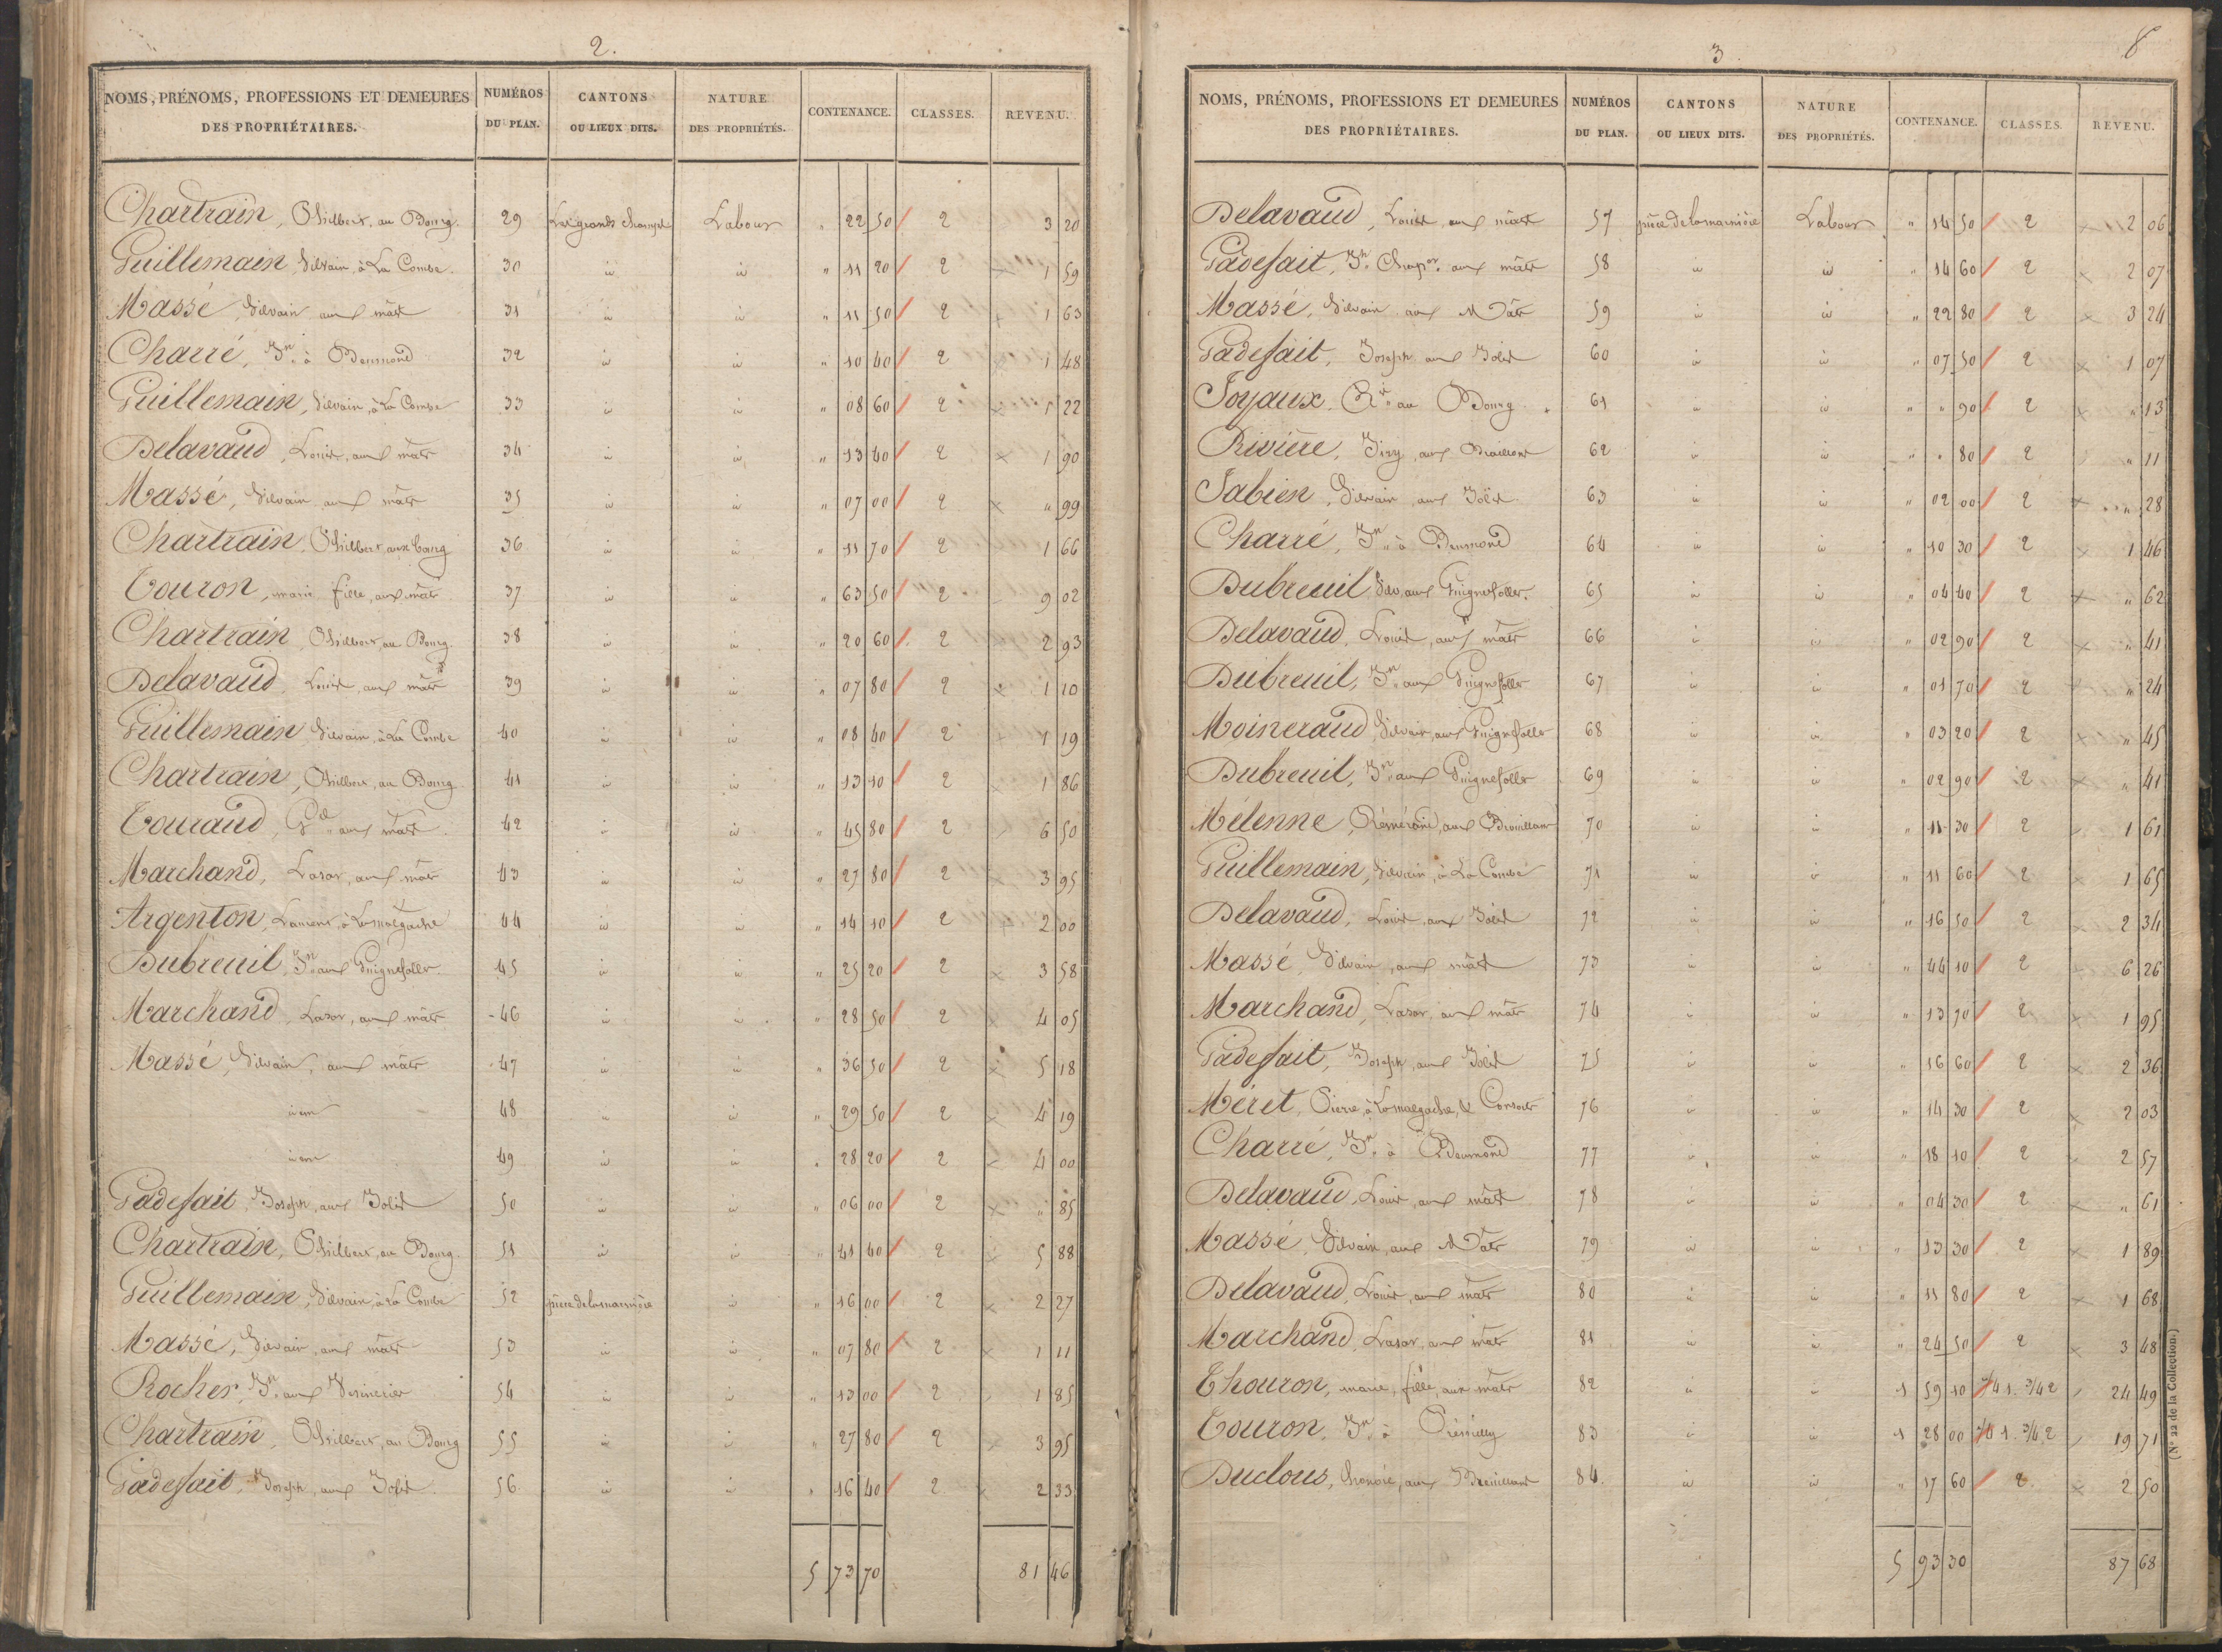 2.
NOMS, PRÉNOMS, PROFESSIONS ET DEMEURES DES PROPRIÉTAIRES. NUMÉROS DU PLAN. CANTONS OU LIEUX DITS. NATURE DES PROPRIÉTÉS. CONTENANCE. CLASSES. REVENU.
Chartrain, au Bourg. 29 Les grands champs Labour " 22 50 2 3 20
Guillemain, Silvain, à La Combe. 30 id id " 11 20 2 1 59
Massé, Silvain aux mâts 31 id id " 11 50 2 1 63
Charré, Jn. à 32 id id " 10 40 2 1 48
Guillemain, Silvain, à La Combe 33 id id " 08 60 2 1 22
Delavaud, Louis, aux mâts 34 id id " 13 40 2 1 90
Massé, Silvain aux mâts 35 id id " 07 00 2 " 99
Chartrain, 36 id id " 11 70 2 1 66
Touron, marie fille, aux mâts 37 id id " 63 50 2 9 02
Chartrain, au Bourg. 38 id id " 20 60 2 2 93
Delavaud, Louis, aux mâts 39 id id " 07 80 2 1 10
Guillemain, Silvain, à La Combe 40 id id " 08 40 2 1 19
Chartrain, au Bourg 41 id id " 13 10 2 1 86
Touraud, aux mâts 42 id id " 45 80 2 6 50
Marchand, Lasar, aux mâts 43 id id " 27 80 2 3 95
Argenton, Laurent, à Lamalgache 44 id id " 14 10 2 2 00
Dubreuil, Jn. aux Guignefolles 45 id id " 25 20 2 3 58
Marchand, Lasar, aux mâts 46 id id " 28 50 2 4 05
Massé, Silvain, aux mâts 47 id id " 36 50 2 5 18
idem 48 id id " 29 50 2 4 19
idem 49 id id " 28 20 2 4 00
Gadefait, Joseph, aux Jolis 50 id id " 06 00 2 " 85
Chartrain, au Bourg. 51 id id " 41 40 2 5 88
Guillemain, Silvain, à La Combe 52 pièce de la marnière id " 16 00 2 2 27
Massé, Silvain, aux mâts 53 id id " 07 80 2 1 11
Rocher, Jn. aux 54 id id " 13 00 2 1 85
Chartrain, au Bourg 55 id id " 27 80 2 3 95
Gadefait, Joseph, aux Jolis 56 id id " 16 40 2 2 33
5 73 70 81 46
3. 8
NOMS, PRÉNOMS, PROFESSIONS ET DEMEURES DES PROPRIÉTAIRES. NUMÉROS DU PLAN. CANTONS OU LIEUX DITS. NATURE DES PROPRIÉTÉS. CONTENANCE. CLASSES. REVENU.
Delavaud, Louis aux mâts 57 pièce de la marnière Labour " 14 50 2 2 06
Gadefait, Jn. aux mâts 58 id id " 14 60 2 2 07
Massé, Silvain aux Mâts 59 id id " 22 80 2 3 24
Gadefait, Joseph aux Jolis 60 id id " 07 50 2 1 07
Joyaux, au Bourg 61 id id " " 90 2 " 13
Rivière, aux 62 id id " " 80 2 " 11
Fabien, Silvain aux Jolis 63 id id " 02 00 2 " 28
Charré, Jn. à 64 id id " 10 30 2 1 46
Dubreuil, Silv. aux Guignefolles. 65 id id " 04 40 2 " 62
Delavaud, Louis, aux mâts 66 id id " 02 90 2 " 41
Dubreuil, Jn. aux Guignefolles 67 id id " 01 70 2 " 24
Moineraud, Silvain, aux Guignefolles 68 id id " 03 20 2 " 45
Dubreuil, Jn. aux Guignefolles 69 id id " 02 90 2 " 41
Mélenne, aux 70 id id " 11 30 2 1 61
Guillemain, Silvain, à La Combe 71 id id " 11 60 2 1 65
Delavaud, Louis, aux Jolis 72 id id " 16 50 2 2 34
Massé, Silvain, aux mâts 73 id id " 44 10 2 6 26
Marchand, Lasar, aux mâts 74 id id " 13 70 2 1 95
Gadefait, Joseph, aux Jolis 75 id id " 16 60 2 2 36
Méret, Pierre, à Lamalgache, & Consorts 76 id id " 14 30 2 2 03
Charré, Jn. à 77 id id " 18 10 2 2 57
Delavaud, Louis, aux mâts 78 id id " 04 30 2 " 61
Massé, Silvain, aux Mâts 79 id id " 13 30 2 1 89
Delavaud, Louis, aux mâts 80 id id " 11 80 2 1 68
Marchand, Lasar, aux mâts 81 id id " 24 50 2 3 48
Thouron, marie, fille, aux mâts 82 id id 1 59 10 1/4 1. 3/4 2 24 49
Touron, Jn. à 83 id id 1 28 00 1/4 1. 3/4 2 19 71
Duclous, honoré, aux 84. id id " 17 60 2. 2 50
5 93 30 87 68
(N° 22 de la Collection.)